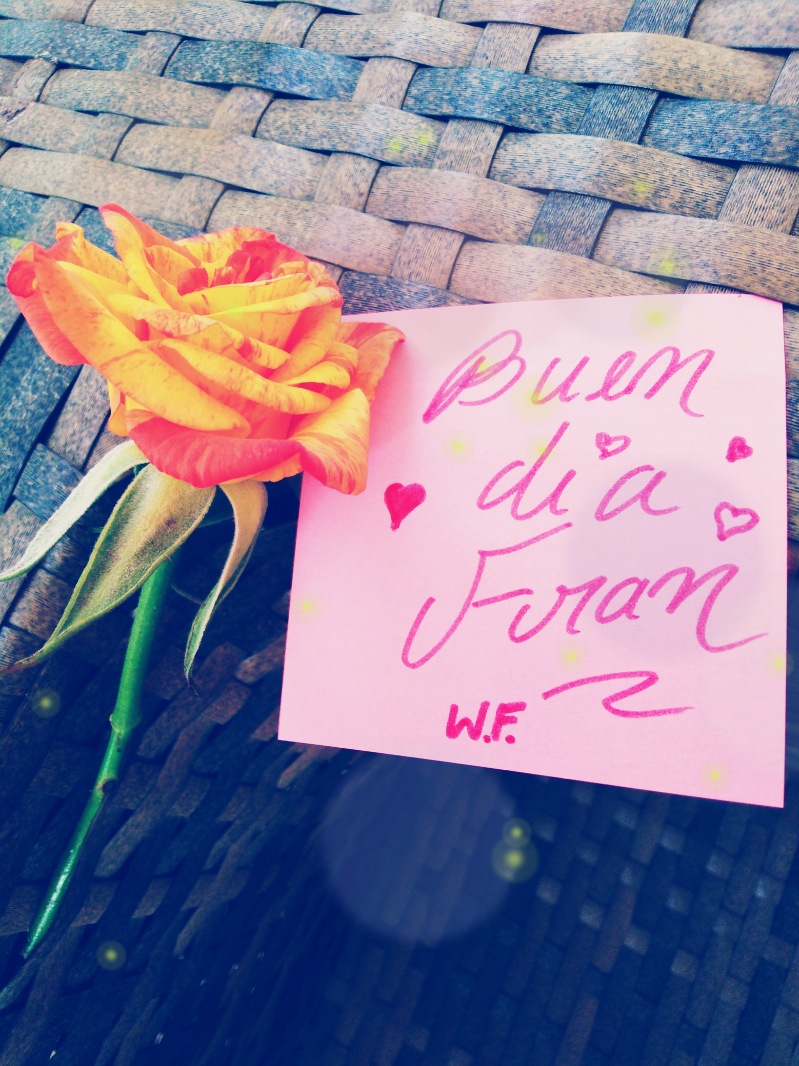 Buen
dia
Fran
W.F.